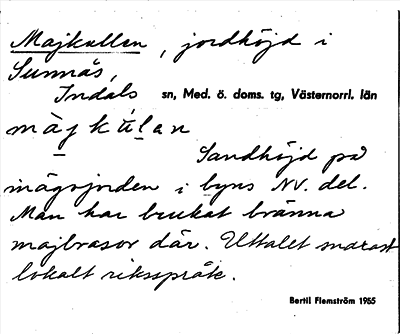 Majkullen, jordhöjd i
Sunnås,
Indals sn, Med. ö. doms. tg, Västernorrl. län
màj kú̀lan
Sandhöjd på
inägojorden i byns NV. del.
Man har brukat bränna
majbrasor där. Uttalet snarast
lokalt riksspråk.
Bertil Flemström 1965